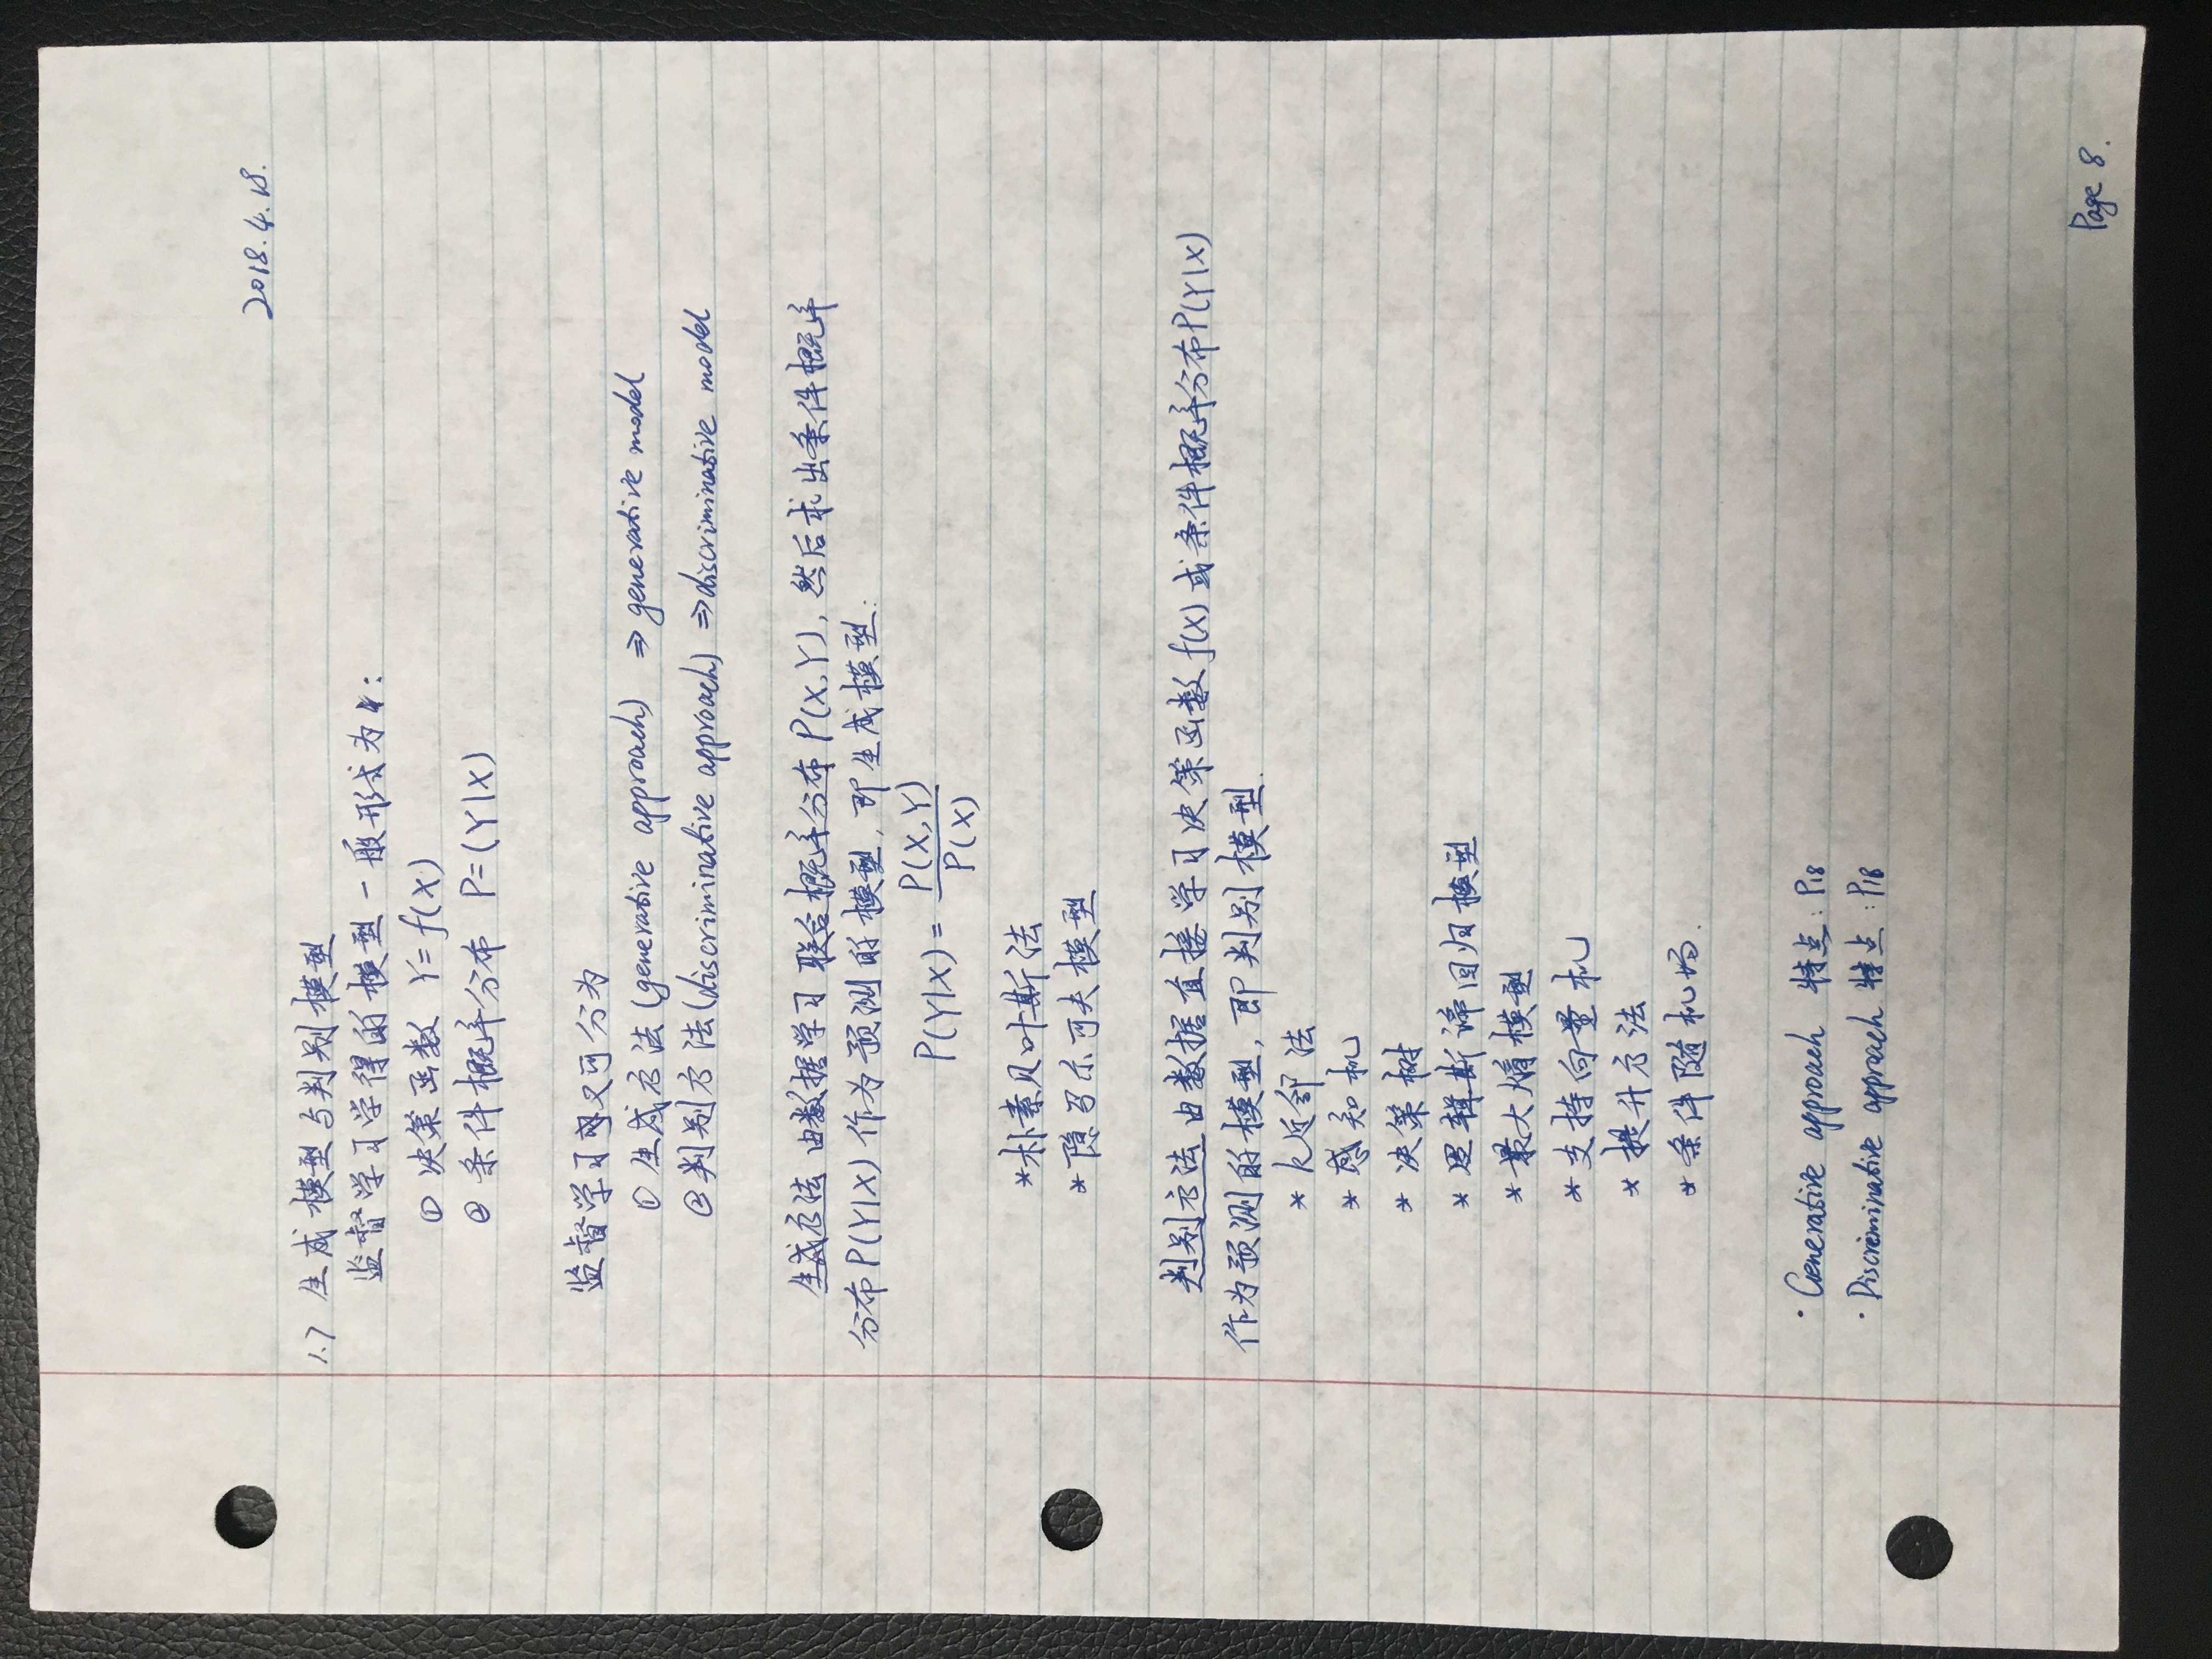 2018.4.18.
1.7 生成模型与判别模型
监督学习学得的模型一般形式为:
① 决策函数 Y=f(X)
② 条件概率分布 P=(Y|X)
监督学习又可分为
① 生成方法(generative approach) ⇒ generative model
② 判别方法(discriminative approach) ⇒ discriminative model
生成方法由数据学习联合概率分布P(X,Y),然后求出条件概率
分布P(Y|X)作为预测的模型,即生成模型:
P(Y|X) = P(X,Y) / P(X)
*朴素贝叶斯法
*隐马尔可夫模型
判别方法由数据直接学习决策函数f(X)或条件概率分布P(Y|X)
作为预测的模型,即判别模型.
* k近邻法
* 感知机
* 决策树
* 逻辑斯谛回归模型
* 最大熵模型
* 支持向量机
* 提升方法
* 条件随机场.
· Generative approach 特点: P18
· Discriminative approach 特点: P18
Page 8.